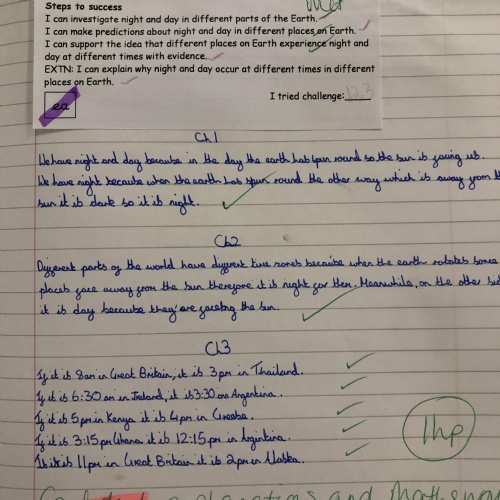 Met
Steps to success
I can investigate night and day in different parts of the Earth.
I can make predictions about night and day in different places on Earth.
I can support the idea that different places on Earth experience night and
day at different times with evidence.
EXTN: I can explain why night and day occur at different times in different
places on Earth.
I tried challenge: 1,2,3
ea
Ch1
We have night and day because in the day the earth has spun round so the sun is facing us.
We have night because when the earth has spun round the other way which is away from th
sun it is dark so it is night.
Ch2
Different parts of the world have diffrent time zones because when the earth rotates some
places face away from the sun therefore it is night for them. Meanwhile, on the other
it is day because they're faceing the sun.
Ch3
If it is 8am in Great Britain, it is 3pm in Thailand.
If it is 6:30 am in Ireland, it is 3:30 am Argentina.
If it is 5pm in Kenya it is 4pm in
If it is 3:15pm Ghana it is 12:15 pm in
If it is 11pm in Great Britain it is 2pm in Alaska.
1hp
explanations and